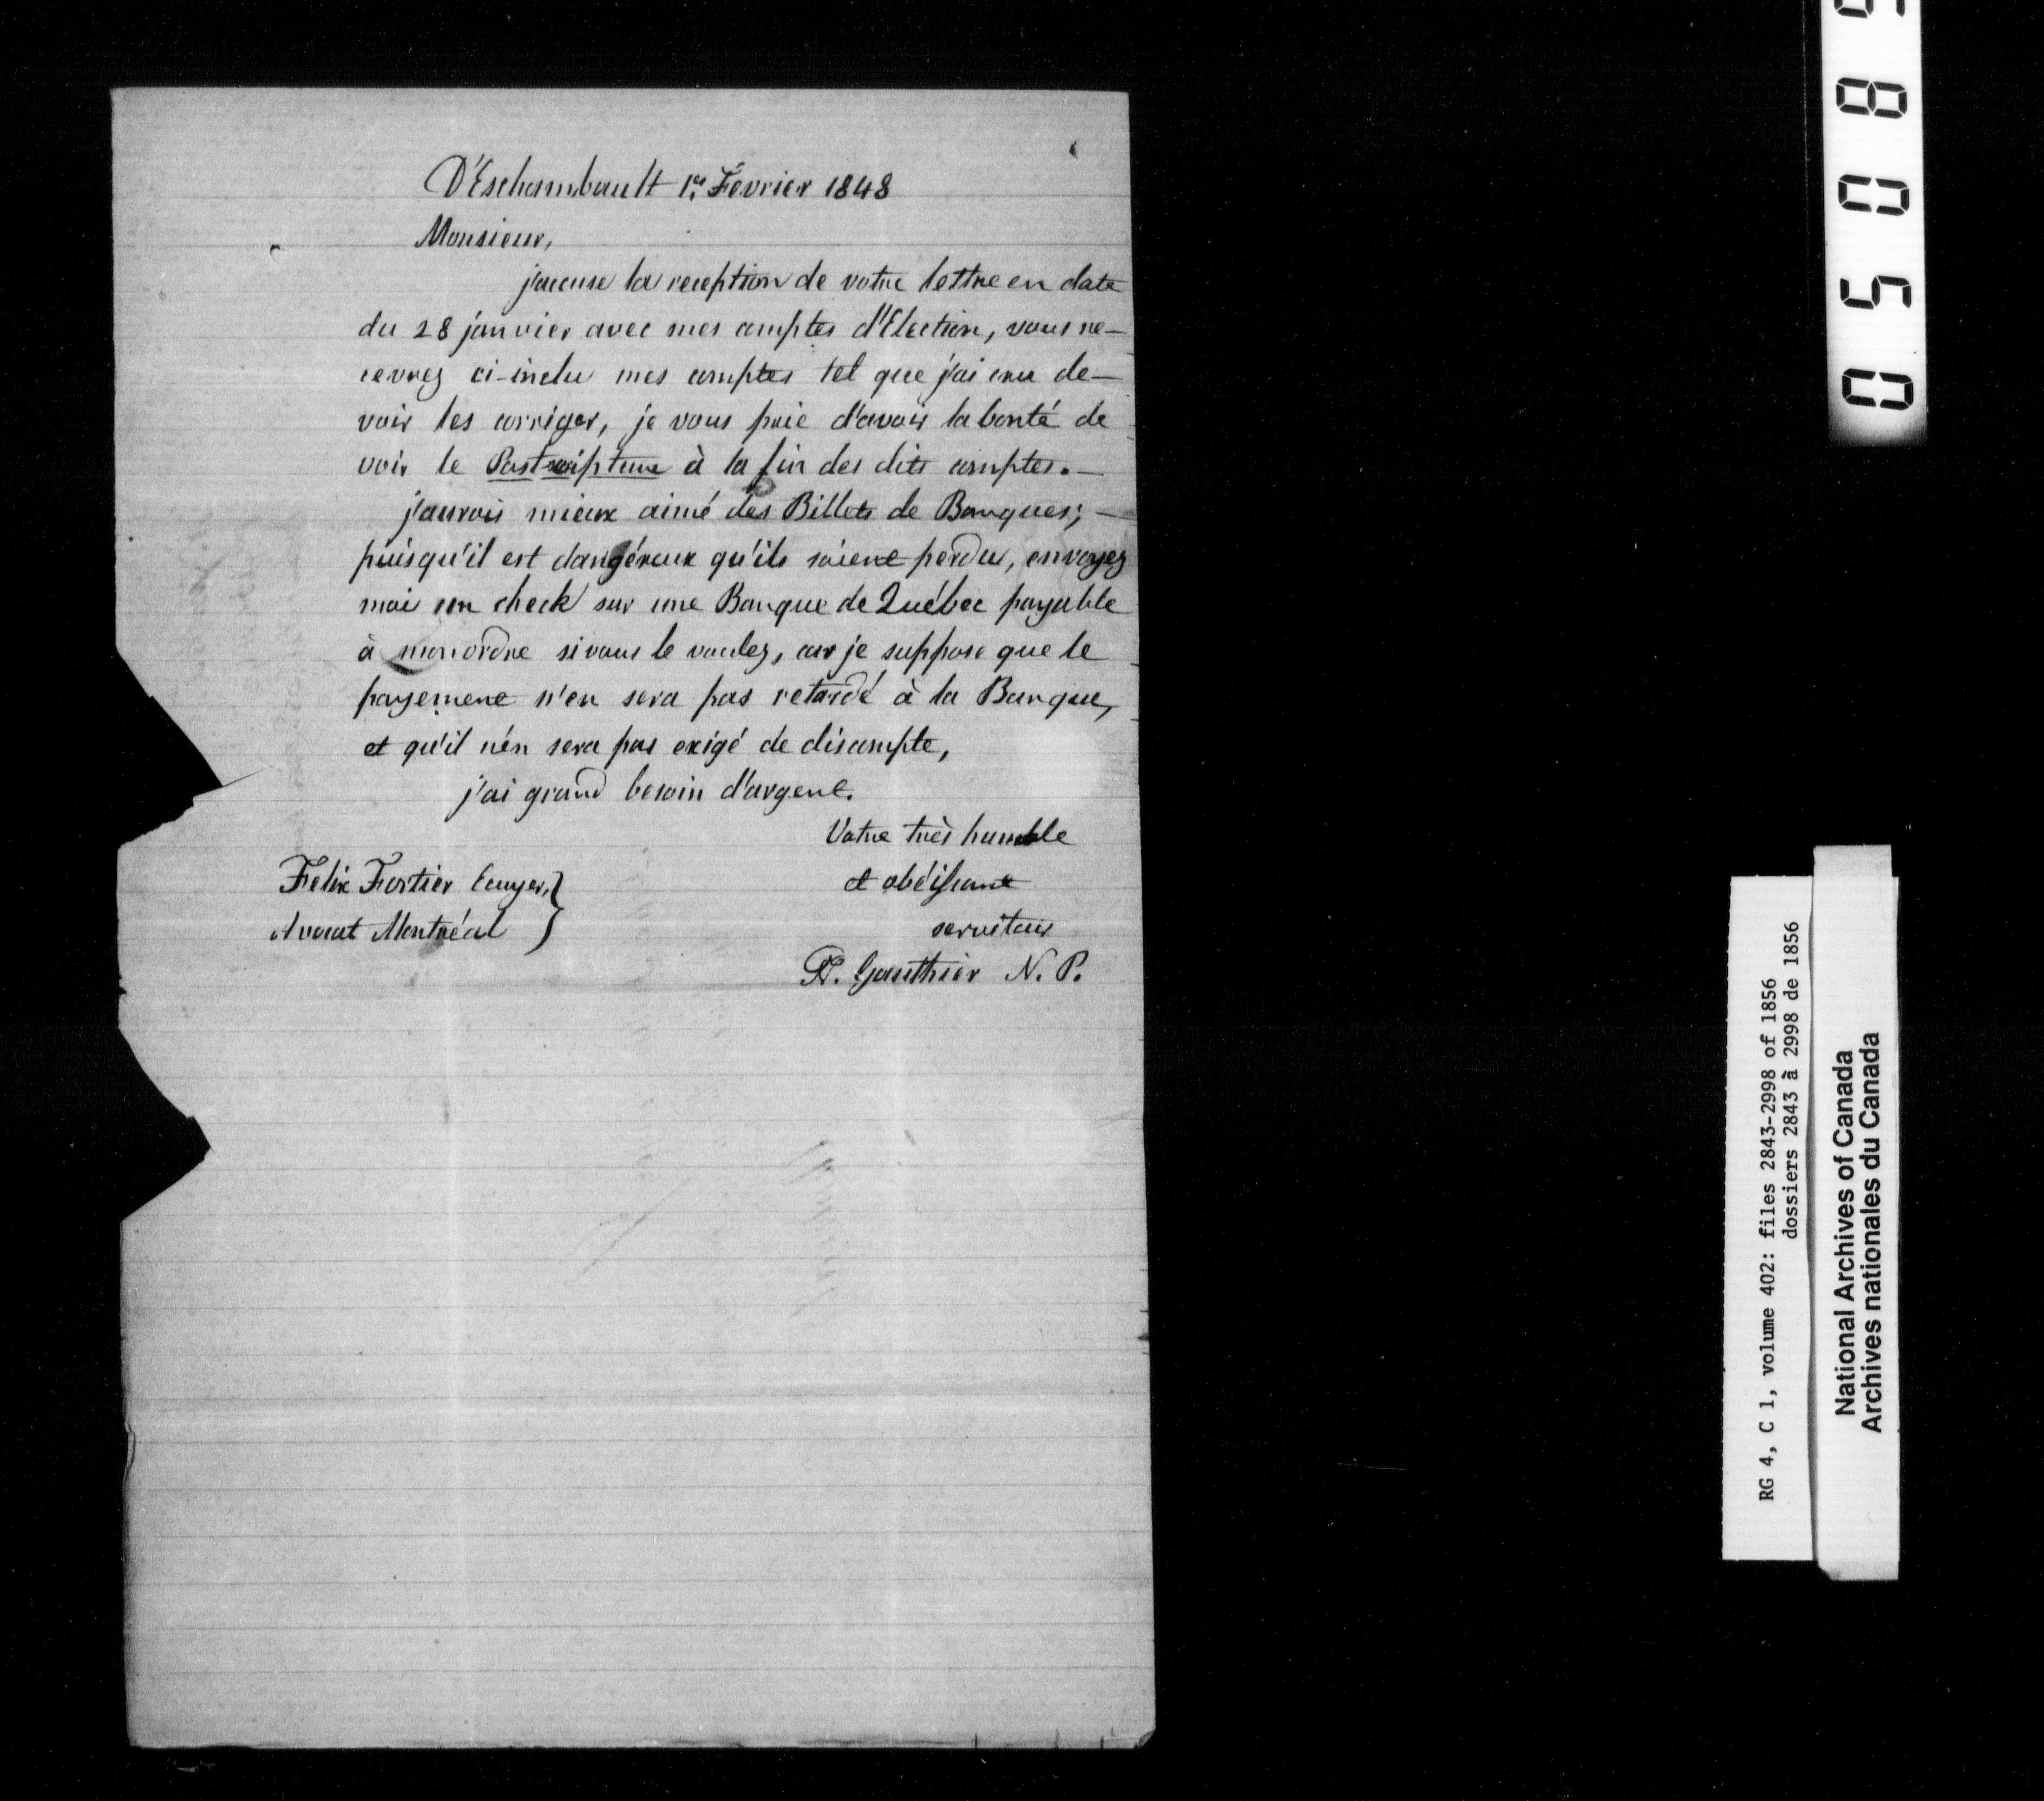 D'Eschambault 1er Février 1848
Monsieur,
j'accuse la reception de votre lettre en date
du 28 janvier avec mes comptes d'Election, vous re-
cevrez ci-inclu mes comptes tel que j'ai cru de-
voir les corriger, je vous prie d'avoir la bonté de
voir le Postscriptum à la fin des dits comptes.-
j'aurois mieux aimé des Billets de Banques; -
puisqu'il est dangéreux qu'ils soient perdu, envoyez
moi un check sur une Banque de Québec payable
à mon ordre si vous le voulez, car je suppose que le
payement n'en sera pas retardé à la Banque,
et qu'il n'en sera pas exigé de discompte,
j'ai grand besoin d'argent.
Votre très humble
et obéissant
serviteur
Gauthier N. P.
Felix Fortier Ecuyer, }
Avocat Montréal
0 5 0 8
RG 4, C 1, volume 402: files 2843-2998 of 1856
dossiers 2843 à 2998 de 1856
National Archives of Canada
Archives nationales du Canada